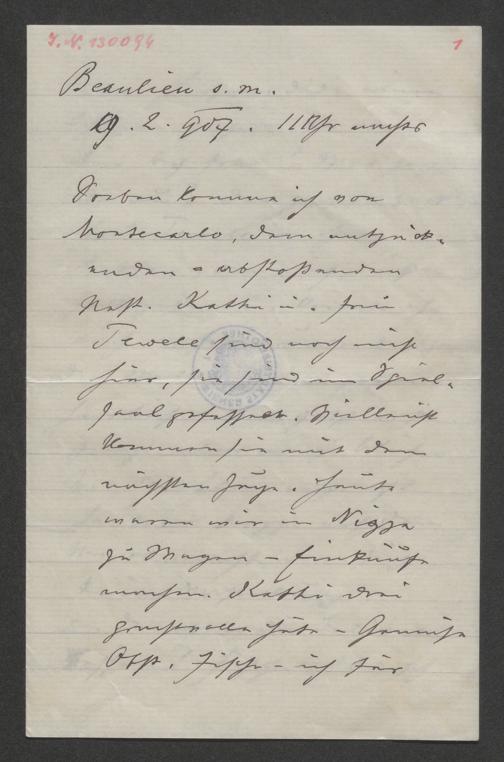 I. N. 130094
1
Beaulieu s. m.
9. 2. 907. 11 Uhr nachts
Soeben komme ich von
Montecarlo, dem entzück-
enden = abstoßenden
Nest. Kathi u. Frau
Tewele sind noch nicht
hier, sie sind im Spiel-
saal gefesselt. Vielleicht
kommen sie mit dem
nächsten Zuge. Heute
waren wir in Nizza
zu Wagen – Einkäufe
machen. Kathi drei
prachtvolle Hüte – Gemüse
Obst. Fische – ich für